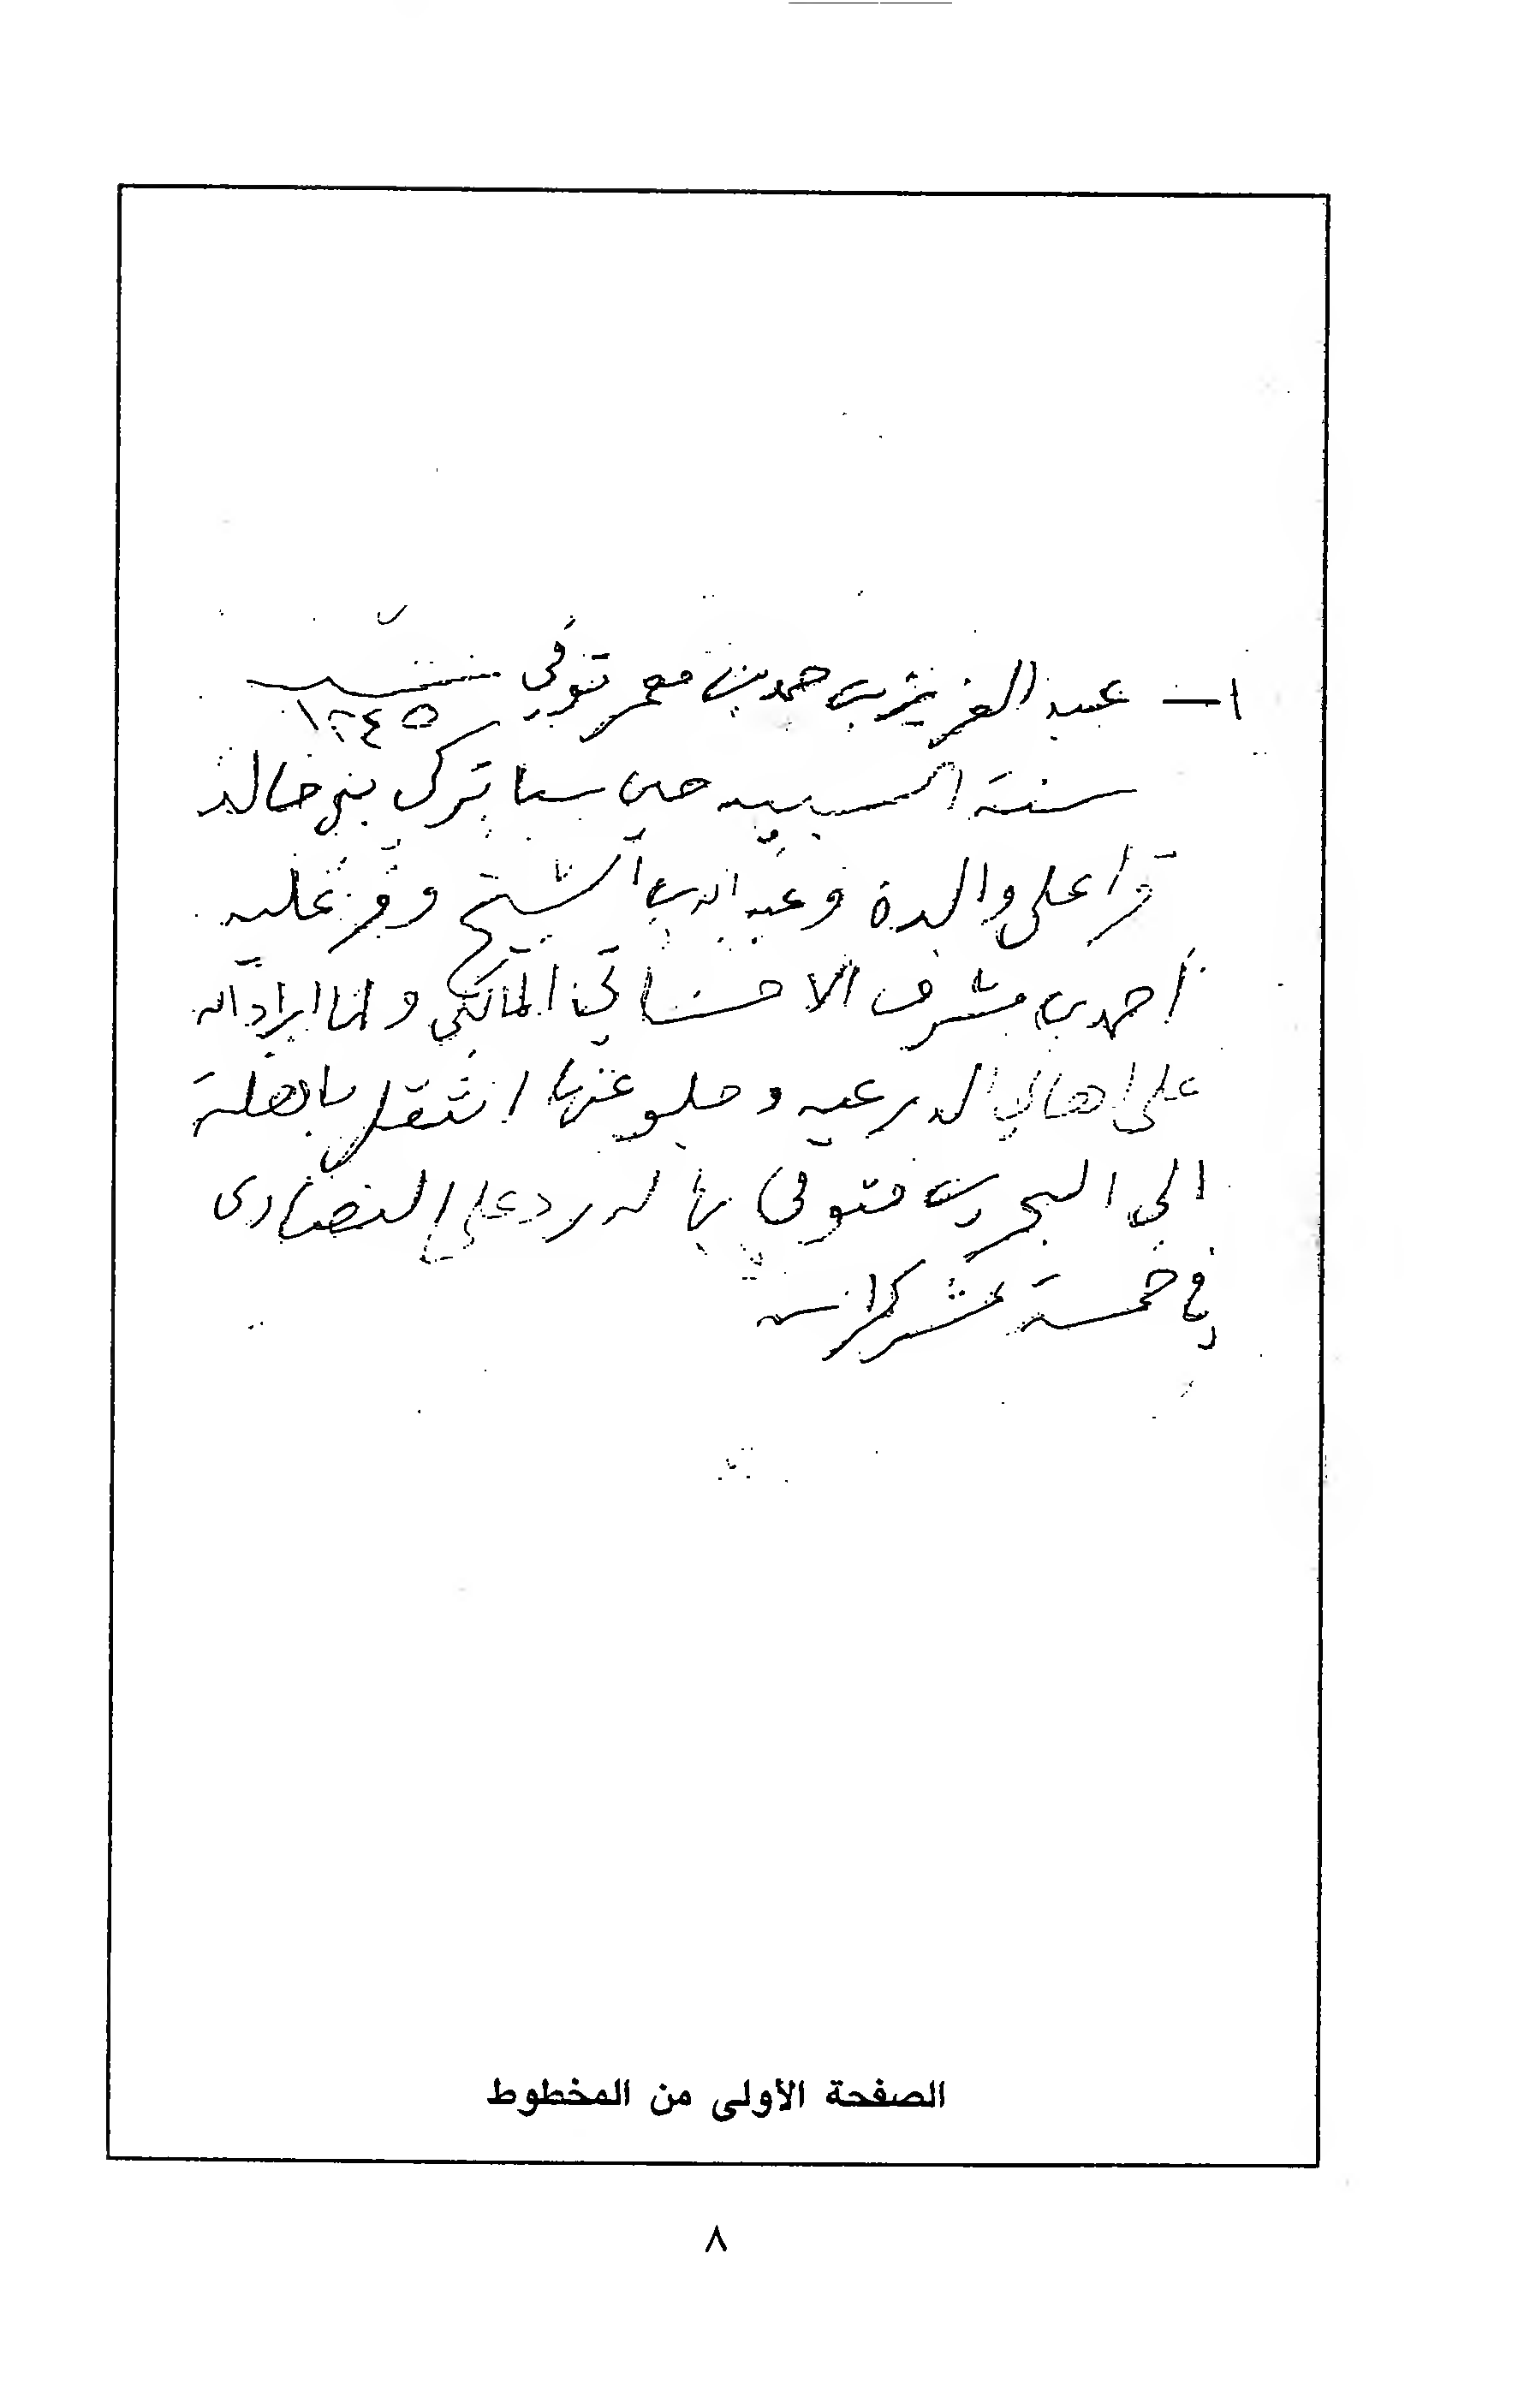 ١ — عبد العزيز بن حمد بن معمر توفي سنة
١٢٤٥
سنة السبيه حين سبا تركي بني خالد
قرا على والده وعبد الله بن الشيخ وقر عليه
أحمد بن مشرف الاحسائي المالكي ولما اراد الله
على اهالي الدرعيه وجلو عنها انتقل باهله
الى البحرين فتوفى بها له رد على النصارى
في خمسة عشر كراس
الصفحة الأولى من المخطوط
٨